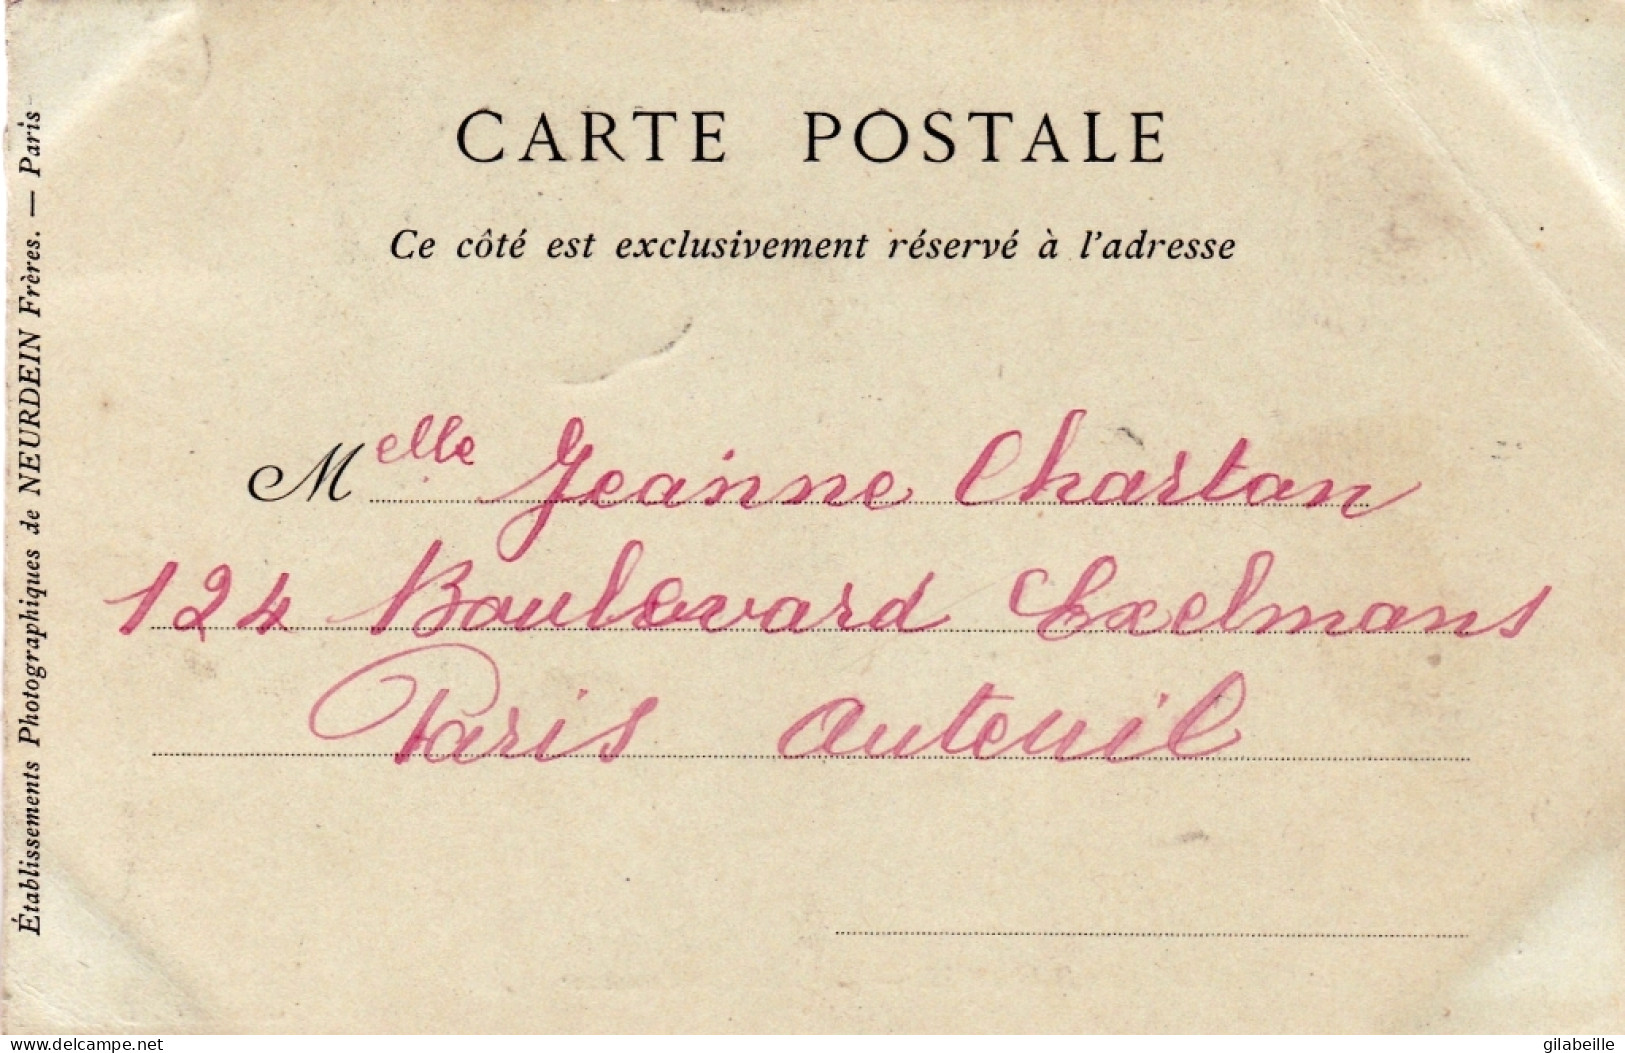 CARTE POSTALE
Ce côté est exclusivement réservé à l'adresse
Melle Jeanne Chartan
124 Boulevard Exelmans
Paris Auteuil
Établissements Photographiques de NEURDEIN Frères. — Paris
www.delcampe.net
gilabeille